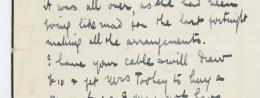 it was all over, as she had been
going like mad for the last fortnight
making all the arrangements.
I have your cable & will draw
£10 & get Mrs Toohey to buy a